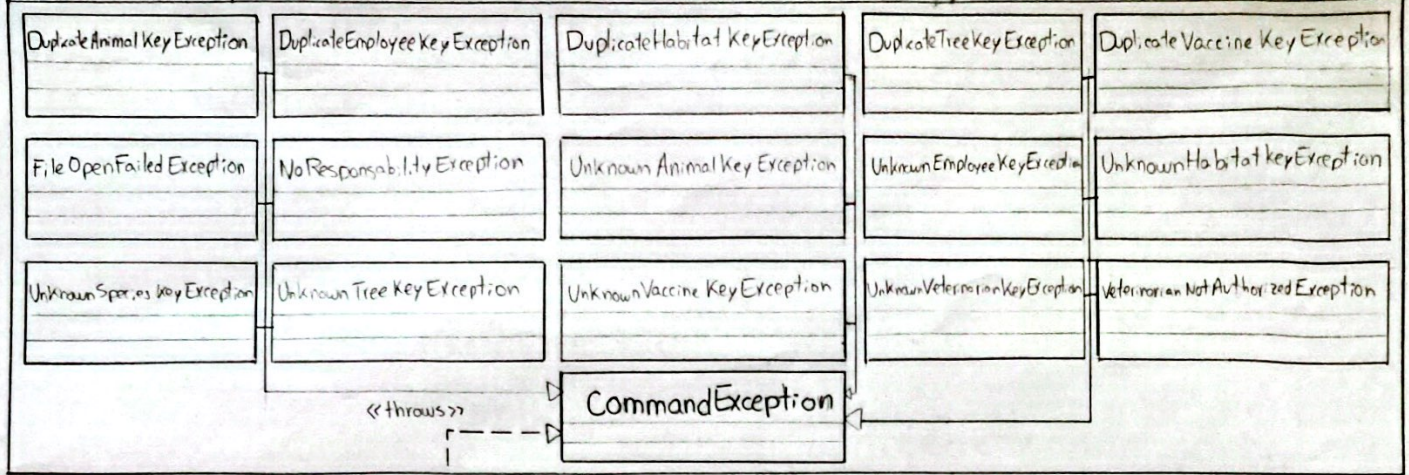 DuplicateAnimalKeyException
DuplicateEmployeeKeyException
DuplicateHabitatKeyException
DuplicateTreeKeyException
DuplicateVaccineKeyException
FileOpenFailedException
NoResponsabilityException
UnknownAnimalKeyException
UnknownEmployeeKeyException
UnknownHabitatKeyException
UnknownSpeciesKeyException
UnknownTreeKeyException
UnknownVaccineKeyException
UnknownVeterinarianKeyException
VeterinarianNotAuthorizedException
CommandException
<<throws>>